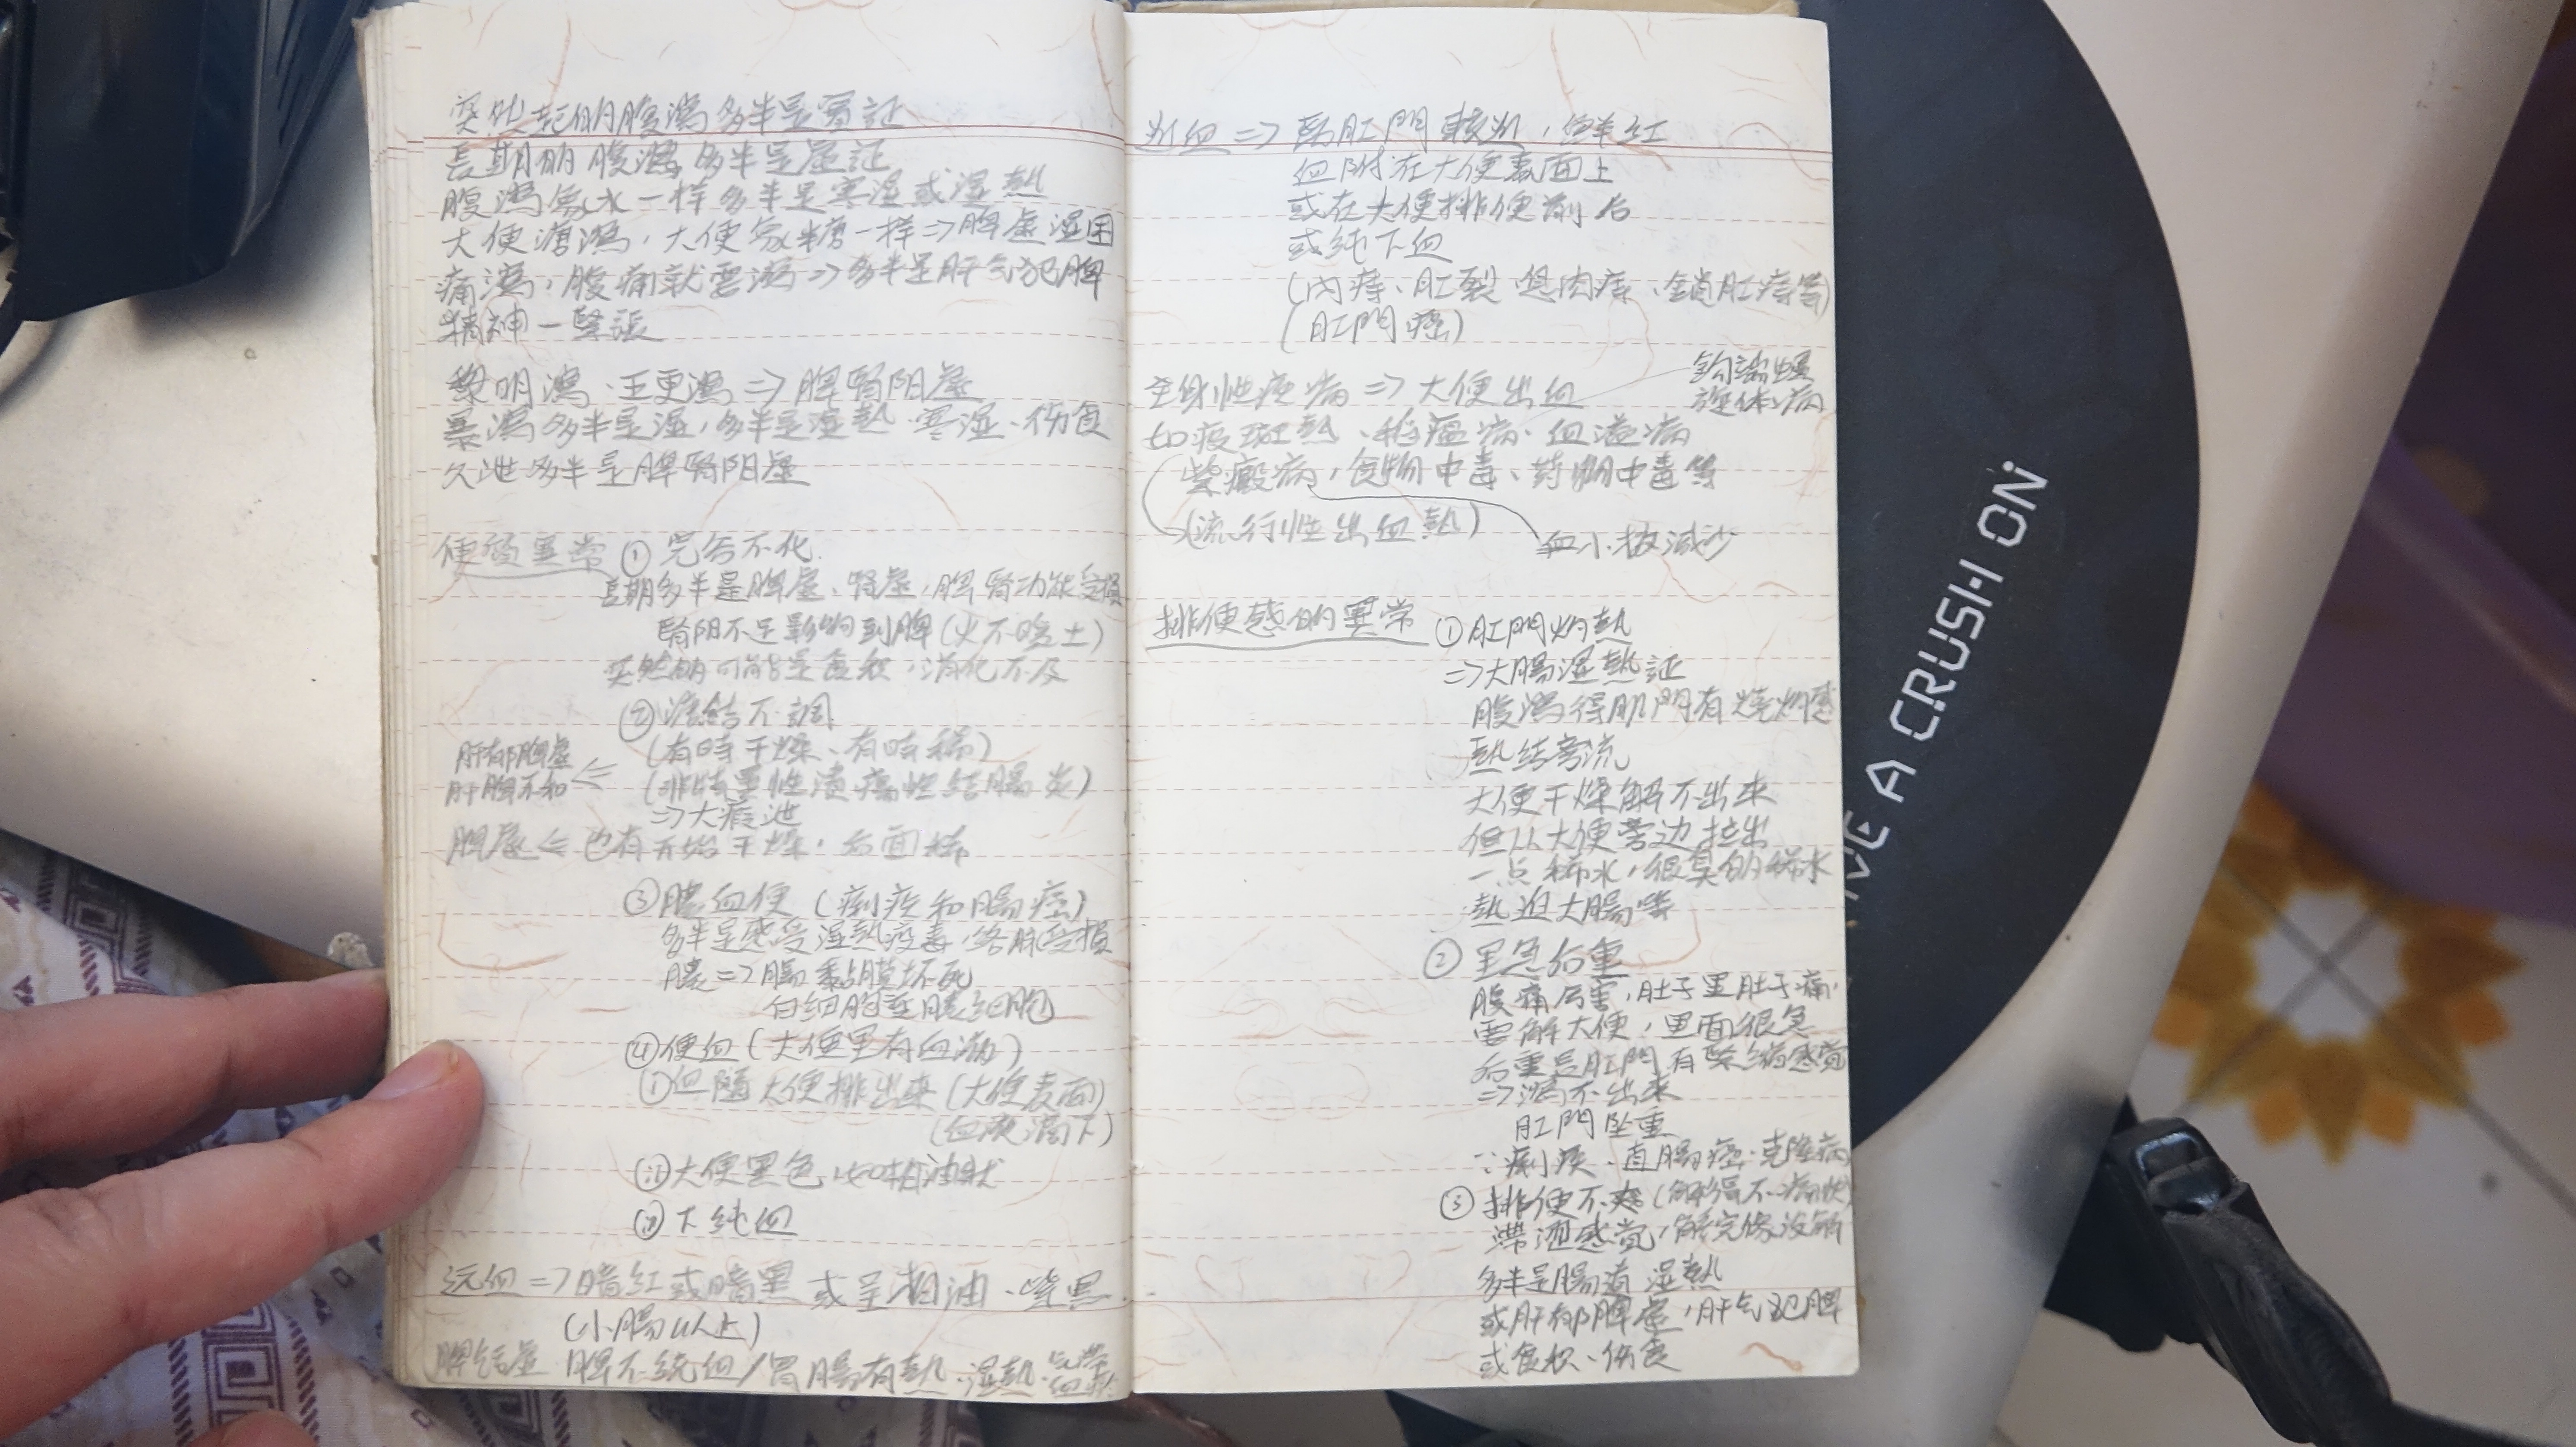 突然起的腹瀉多半是實証
長期的腹瀉多半是虛証
腹瀉象水一样多半是寒湿或湿熱
大便溏瀉，大便象糖一样⇒脾虛湿困
痛瀉，腹痛就要瀉⇒多半是肝气犯脾
精神一緊張
黎明瀉、五更瀉⇒脾腎阳虛
暴瀉多半是湿，多半是湿熱、寒湿、伤食
久泄多半是脾腎阳虛
便質異常 ① 完谷不化
長期多半是脾虛、腎虛，脾腎功能受損
腎阳不足影响到脾（火不暖土）
突然的可能是食积，消化不及
② 溏結不調
（有時干燥、有時稀）
肝郁脾虛
肝脾不和 ⇐ （非特異性潰瘍性结腸炎）
⇒大瘕泄
脾虛⇐也有开始干燥，后面稀
③ 膿血便（痢疾和腸癌）
多半是感受湿熱疫毒，络脉受損
膿⇒腸黏膜坏死
白细胞
④ 便血（大便里有血液）
① 血隨大便排出來（大便表面）
（血液滴下）
大便黑色，如柏油狀
下纯血
远血⇒暗红或暗黑 或呈柏油、紫黑
（小腸以上）
脾气虛 脾不统血/胃腸有熱、湿熱、气滞
近血⇒ 肛門 ，鮮红
血附在大便表面上
或在大便排便前后
或纯下血
（内痔、肛裂、息肉痔、鎖肛痔等）
（肛門癌）
鈎端螺
旋体病
全身性疾病⇒大便出血
如疫斑熱、稻瘟病、血溢病
紫癜病，食物中毒、药物中毒等
（流行性出血熱）
血小板減少
排便感的異常 ① 肛門灼熱
⇒大腸湿熱証
腹瀉得肌門有烧灼感
熱结旁流
大便干燥解不出來
但从大便旁边拉出
一点稀水，很臭的稀水
熱迫大腸等
② 里急后重
腹痛厉害，肚子里肚子痛，
要解大便，里面很急
后重是肛門有緊缩感觉
⇒瀉不出來
肛門坠重
∵痢疾、直腸癌、克隆病
③ 排便不爽（解得不痛快）
滯涩感觉，解完像没解
多半是腸道湿熱
或肝郁脾虛，肝气犯脾
或食积、伤食
A CRUSH ON